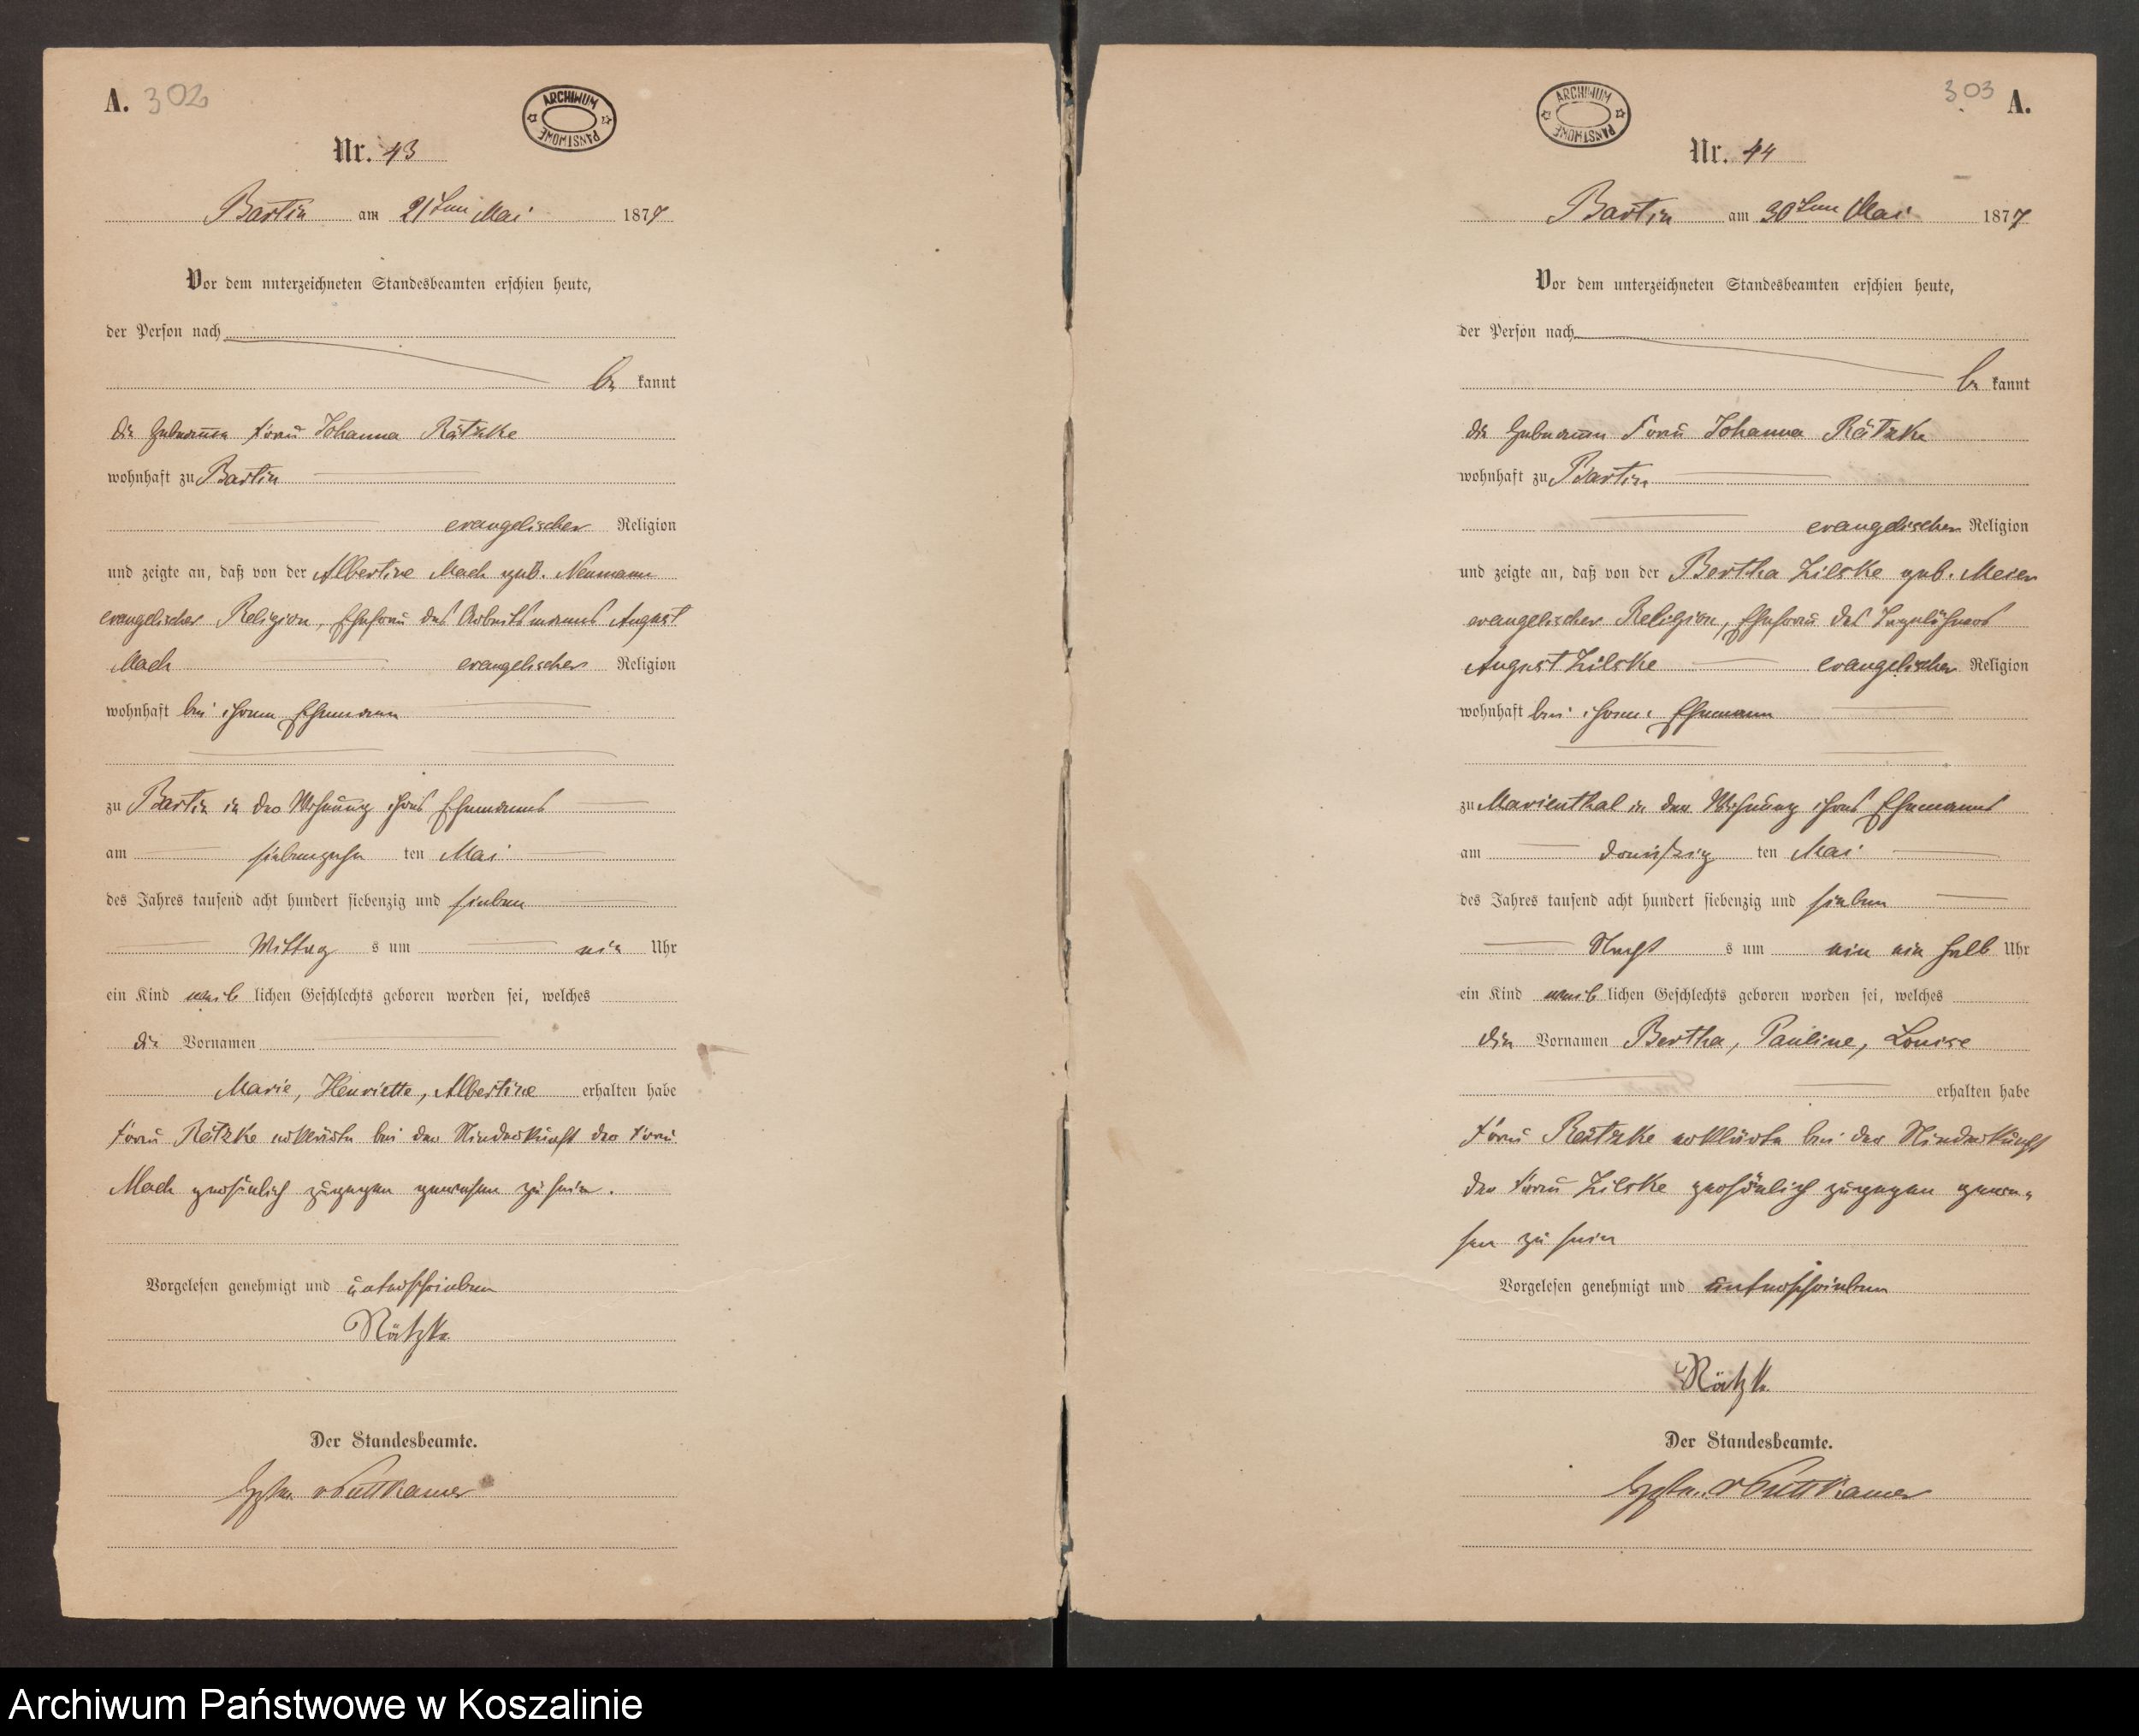 A. 302
ARCHIWUM PAŃSTWOWE
Nr. 43
Bartin am 21ten Mai 1877
Vor dem unterzeichneten Standesbeamten erschien heute,
der Person nach
be kannt
die Hebamme Frau Johanna Rätzke
wohnhaft zu Bartin
evangelischer Religion
und zeigte an, daß von der Albertine Mach geb. Neumann
evangelischer Religion, Ehefrau des Arbeitsmanns August
Mach evangelischer Religion
wohnhaft bei ihrem Ehemann
zu Bartin in der Wohnung ihres Ehemanns
am siebenzehn ten Mai
des Jahres tausend acht hundert siebenzig und sieben
Mittag s um ein Uhr
ein Kind weib lichen Geschlechts geboren worden sei, welches
die Vornamen
Marie, Henriette, Albertine erhalten habe
Frau Rätzke erklärte bei der Niederkunft der Frau
Mach persönlich zugegen gewesen zu sein.
Vorgelesen genehmigt und unterschrieben
Rätzke
Der Standesbeamte.
v Puttkamer
303 A.
ARCHIWUM PAŃSTWOWE
Nr. 44
Bartin am 30ten Mai 1877
Vor dem unterzeichneten Standesbeamten erschien heute,
der Person nach
be kannt
die Hebamme Frau Johanna Rätzke
wohnhaft zu Bartin
evangelischer Religion
und zeigte an, daß von der Bertha Zilske geb. Meier
evangelischer Religion, Ehefrau des Tagelöhners
August Zilske evangelischer Religion
wohnhaft bei ihrem Ehemann
zu Marienthal in der Wohnung ihres Ehemanns
am dreißzig ten Mai
des Jahres tausend acht hundert siebenzig und sieben
Nacht s um ein ein halb Uhr
ein Kind weib lichen Geschlechts geboren worden sei, welches
die Vornamen Bertha, Pauline, Louise
erhalten habe
Frau Rätzke erklärte bei der Niederkunft
der Frau Zilske persönlich zugegen gewe-
sen zu sein
Vorgelesen genehmigt und unterschrieben
Rätzke
Der Standesbeamte.
v Puttkamer
Archiwum Państwowe w Koszalinie